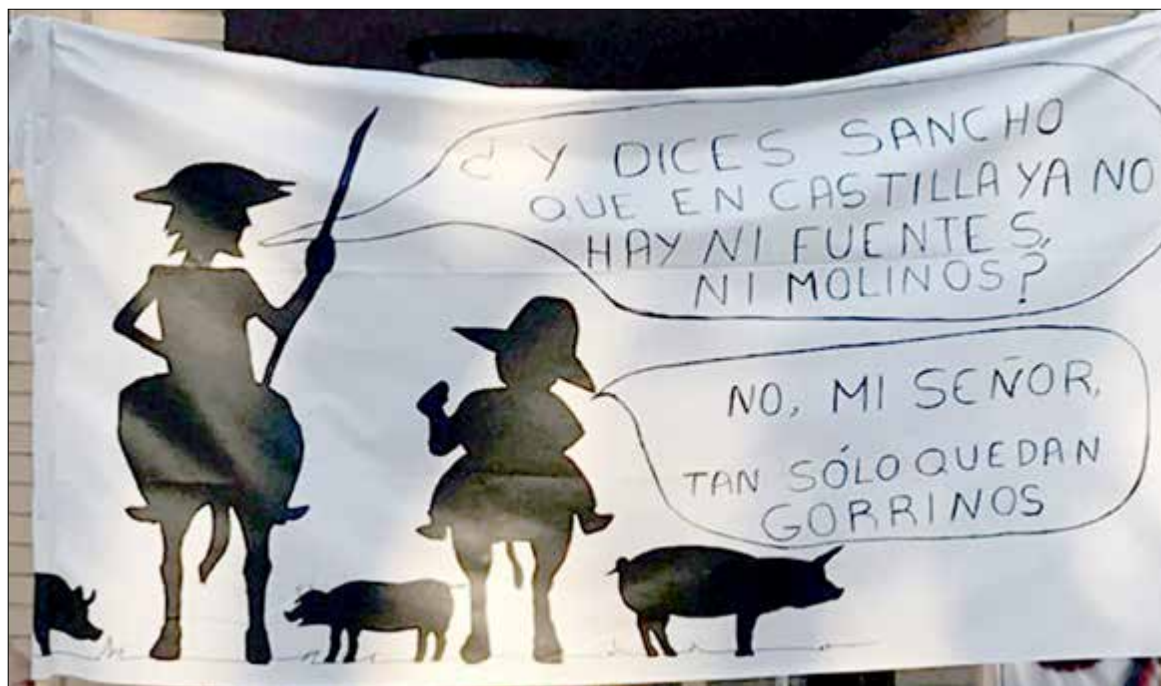 ¿Y DICES SANCHO
QUE EN CASTILLA YA NO
HAY NI FUENTES,
NI MOLINOS?
NO, MI SEÑOR,
TAN SÓLO QUEDAN
GORRINOS